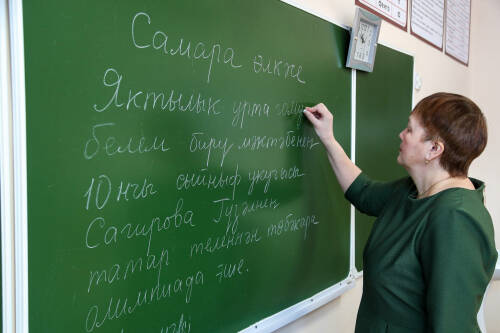 Самара өлкәсе
Яктылык урта гомуми
белем бирү мәктәбенең
10нчы сыйныф укучысы
Сагирова Гүзәлнең
татар теленнән төбәкара
олимпиада эше.